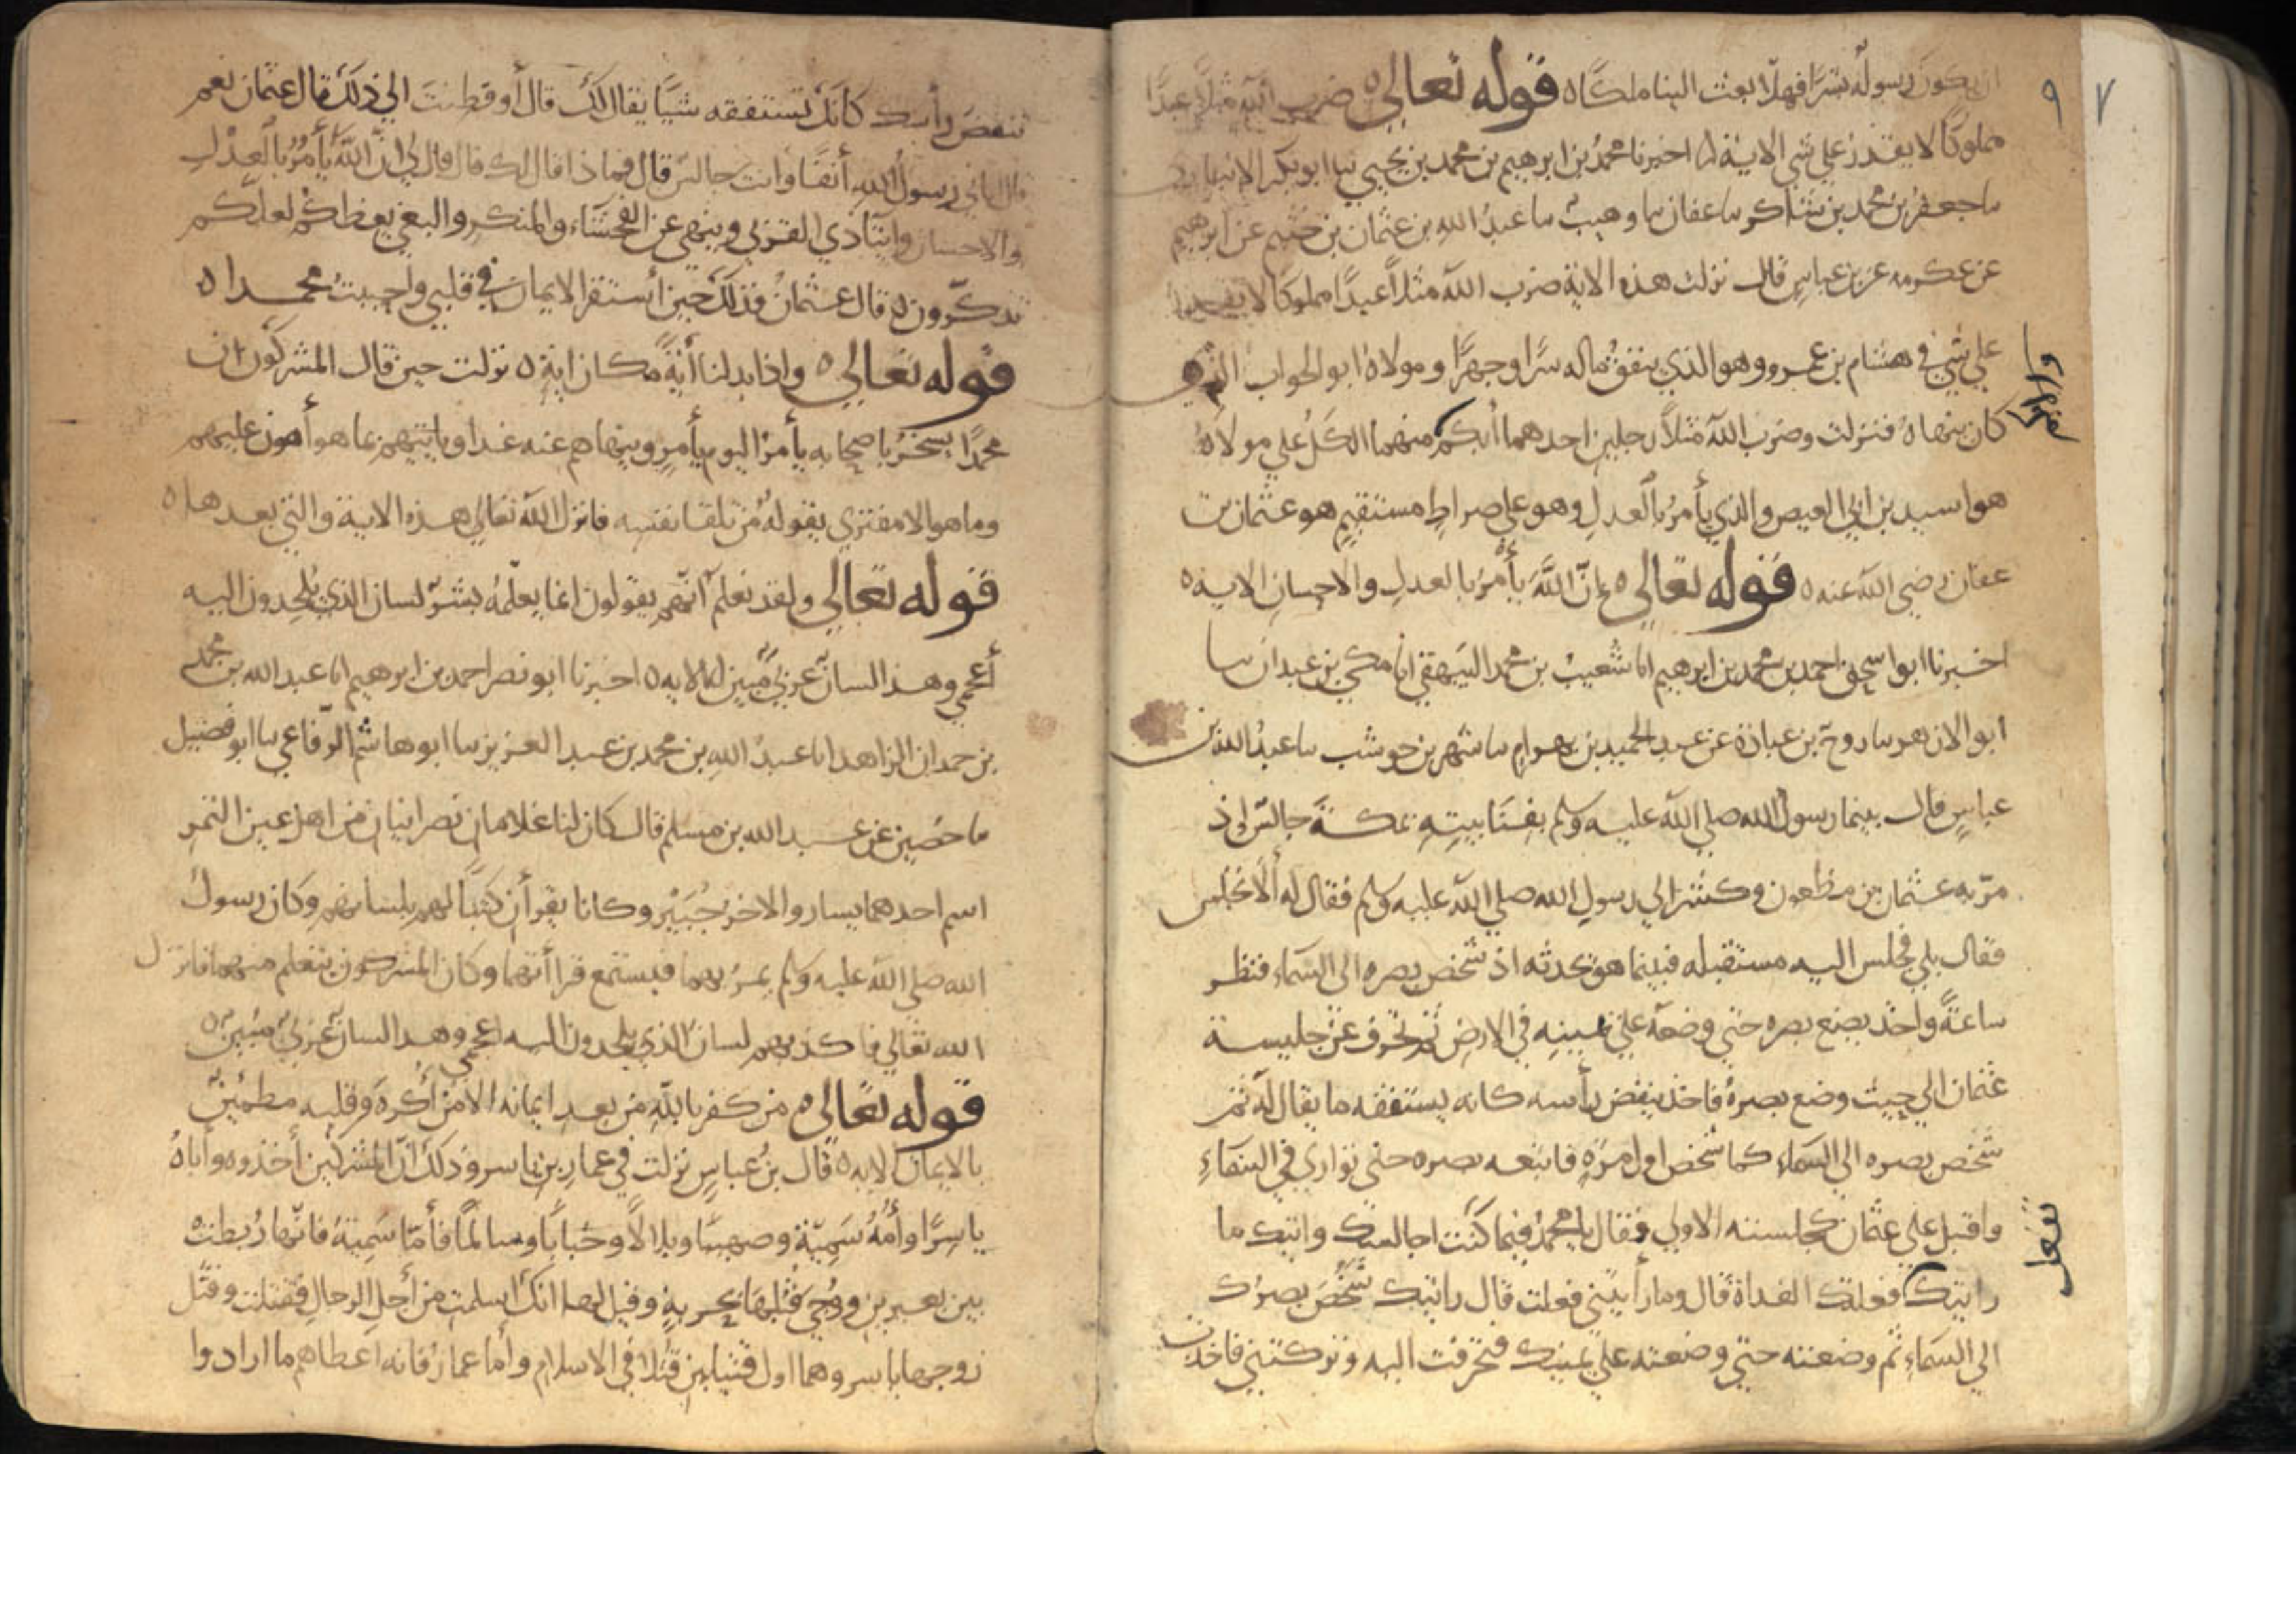 ان يكون رسوله بشرًا فهلّا بعث الينا ملكًا ه قوله تعالى ه ضرب الله مثلًا عبدًا
مملوكًا لا يقدر على شي الاية ه اخبرنا محمدُ بن ابرهيم بن محمد بن يحيى نبا ابو بكر الانباري
سا جعفرُ بن محمد بن شاكر سا عفان سا وهيبٌ سا عبدُ الله بن عثمان بن خثيم عن ابرهيم
عن عكرمه عن بن عباسٍ قال نزلت هذه الاية ضرب الله مثلًا عبدًا مملوكًا لا يقدرُ
على شيٍ في هشام بن عمرو وهو الذي ينفقُ ماله سرًّا وجهرًا ومولاهُ ابو الجواب الذي
كان ينهاهُ فنزلت وضرب الله مثلًا رجلين احدهما أبكم منهما الكَلُّ على مولاهُ
هو اسيد بن ابي العيص والذي يأمرُ بالعدلِ وهو على صراطٍ مستقيمٍ هو عثمان بن
عفان رضي الله عنه ه قوله تعالى ه إنّ اللّهَ يأمُرُ بالعدلِ والاحسانِ الاية ه
اخبرنا ابو اسحق احمد بن محمد بن ابرهيم انا شعيبُ بن محمد البيهقي انا مكي بن عبدان سا
ابو الازهر سا روح بن عبادة عن عبد الحميد بن بهرامٍ سا شهر بن حوشب سا عبدُ الله بن
عباسٍ قال بينما رسولُ الله صلى الله عليه وسلم بفِنَا بيتِهِ بمكةَ جالسٌ اذ
مرّ به عثمان بن مظعون وكشر الى رسولِ الله صلى الله عليه وسلم فقال له ألا تجلس
فقال بلى فجلس اليه مستقبله فبينما هو يحدثه اذ شخص بصره الى السماء فنظر
ساعةً واخذ يضع بصره حتى وضعه على يمينِهِ في الارضِ ثم تحرف عن جليسة
عثمان الى حيث وضع بصرهُ فاخذ ينفض رأسه كانه يستفقه ما يقال لَه ثم
شخص بصره الى السماء كما شخص اول مرةٍ فاتبعه بصره حتى توارى في السماءِ
واقبل على عثمان كجلسته الاولى فقال يا محمدُ فيما كنتُ اجالسك واتيك ما
رايتك فعلتك الغداة قال وما رأيتني فعلت قال رايتك شَخَصَ بصرُك
الى السماءِ ثم وضعته حتى وضعته على يمينك فتحرفت اليه وتركتني فاخذت
وابو
تفعل
٩ ٧
تنفضَ رأسك كانّك تستفقه شيًا يقال لك قال أوفطِنتَ الى ذلك قال عثمان نعم
قال اتاني رسولُ اللهِ أنفًا وانت جالسٌ قال فماذا قال لك قال قال لي إنّ اللهَ يأمُرُ بالعدْلِ
والاحسانِ وايتآ ذي القربى وينهى عن الفحشاء والمنكر والبغي يعظكُمْ لعلكم
تذكّرون ه قال عثمانُ فذلك حين استقر الايمان في قلبي واحببتُ محمدا ه
قوله تعالى ه واذا بدلنا أيةً مكان ايةٍ ه نزلت حين قال المشركون ان
محمدًا يسخرُ باصحابه يأمرُ اليوم بأمرٍ وينهاهم عنه غدا وياتيهم بما هو أهون عليهم
وما هو الا مفتري يقولهُ من تلقا نفسِه فانزل الله تعالى هذه الاية والتي بعدها ه
قوله تعالى ولقد نعلم أنّهم يقولون انما يعلّمهُ بشرٌ لسان الذي يُلحِدون اليه
أعجمي وهذا لسانٌ عربيٌ مبينٌ الاية ه اخبرنا ابو نصر احمد بن ابرهيم انا عبد الله بن محمد
بن حمدان الزاهد انا عبدُ اللهِ بن محمد بن عبد العزيز سا ابو هاشم الرّفاعي سا ابو فضيل
سا حصين عن عبد الله بن مسلم قال كان لنا غلامان نصرانيان من اهل عين التمرِ
اسم احدهما يسار والاخر جُبَيْر وكانا يقرأن كتبًا لهم بلسانهم وكان رسولُ
الله صلى الله عليه وسلم يمرُ بهما فيستمع قراأتهما وكان المشركون يتعلم منهما فانزل
الله تعالى فاكذبهم لسانُ الذي يلحدون اليه اعجمي وهذا لسانٌ عربيٌ مبينٌ ه
قوله تعالى ه من كفر باللّهِ من بعدِ ايمانه الا من أكره وقلبه مطمئنٌ
بالايمان الاية ه قال بنُ عباسٍ نزلت في عمارِ بن ياسر وذلك انّ المشركين أخذوه وأباهُ
ياسِرًا وأُمَّهُ سُمِيّة وصهيبًا وبلالًا وخبابًا وسالمًا فأمّا سُمِيّةُ فانّها رُبطتْ
بين بعيرين ووُجِيَ قُبُلُها بحربةٍ وقيل لها انك اسلمتِ من أجلِ الرجالِ فقتلت وقُتل
زوجها ياسر وهما اول قتيلين قُتلا في الاسلام وأما عمارُ فانه اعطاهم ما ارادوا